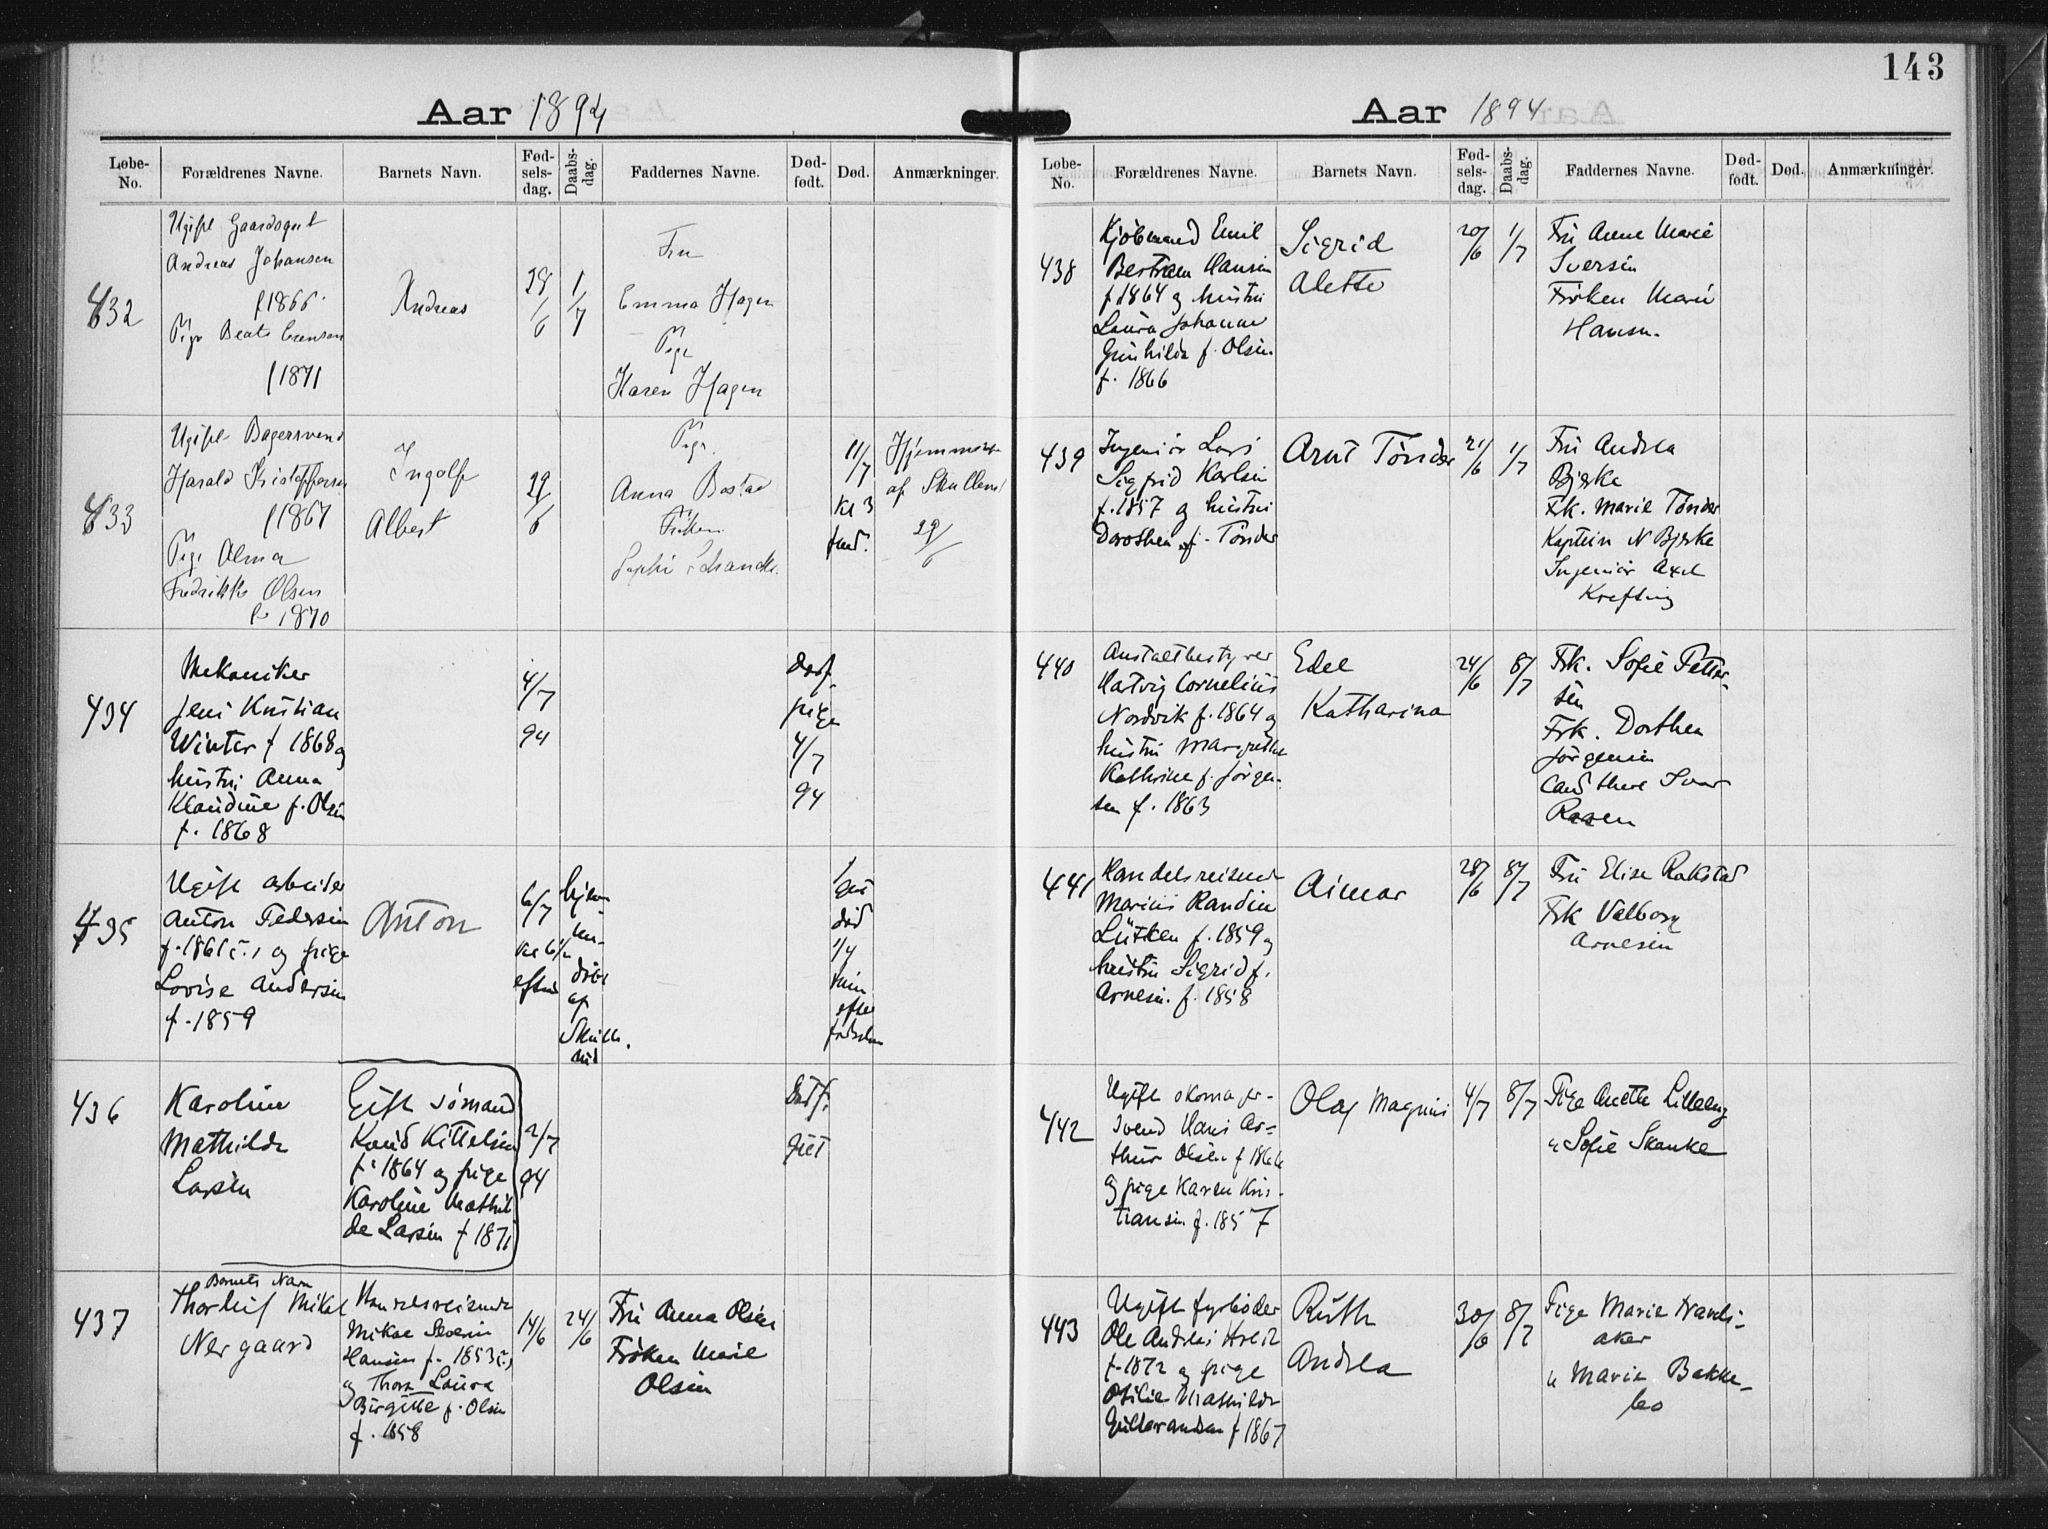 143
Aar 1894
Løbe-No. Forældrenes Navne. Barnets Navn. Fød-sels-dag. Daabs-dag. Faddernes Navne. Død-født. Død. Anmærkninger.
432
Ugift Gaardsgut
Andreas Johansen
f 1866
Pige Beate
f 1871
Andreas
29/6
1/7
Fru
Emma Hagen
Pige
Karen Hagen
433
Ugift Bagersvend
Harald Kristoffersen
f 1867
Pige Alma
Fredrikke Olsen
f 1870
Ingolf
Albert
29/6
Pige
Anna Bostad
Frøken
11/7
kl 3
Hjemmedøbt
af
29/6
434
Mekaniker
Jens Kristian
Winter f 1868 og
hustru Anna
Klaudine f. Olsen
f. 1868
4/7
94
dødf.
pige
4/7
94
435
Ugift arbeider
Anton Pedersen
f. 1861 og pige
Lovise Andersen
f. 1859
Anton
6/7
kl 6 1/2
eftm
hjem-
me-
døbt
af
død
1/4
time
efter
fødselen
436
Karoline
Mathilde
Larsen
Gift sømand
Knud Kittelsen
f. 1864 og pige
Karoline Mathil
de Larsen f 1871
2/7
94
Dødf.
gut
437
Barnets Navn
Thorleif Mikal
Nergaard
Handelsreisende
Mikae Severin
Hansen f. 1853
og Thora Laura
Birgitte f. Olsen
f. 1858
14/6
24/6
Fru Anna Olsen
Frøken Marie
Olsen
Aar 1894
Løbe-No. Forældrenes Navne. Barnets Navn. Fød-sels-dag. Daabs-dag. Faddernes Navne. Død-født. Død. Anmærkninger.
438
Kjøbmand Emil
Bertram Hansen
f 1864 og hustru
Laura Johanne
Gunhilda f. Olsen
f. 1866
Sigrid
Alette
20/6
1/7
Fru Anne Marie
Iversen
Frøken Marie
Hansen.
439
Ingeniør Lars
Sigfrid Karlsen
f. 1857 og hustru
Dorothea f. Tønder
Arnt Tønder
21/6
1/7
Fru Andrea
Bjerke
Frk. Marie Tønder
Kaptein N Bjerke
Ingeniør Axel
Krefting
440
Anstaltbestyrer
Hartvig Cornelius
Nordvik f. 1864 og
hustru Margrethe
Kathrine f. Jørgen-
sen f. 1863
Edel
Katharina
24/6
8/7
Frk. Sofie Petter-
sen
Frk. Dorthea
Jørgensen
Cand theol Ivar
Raaen
441
Handelsreisende
Marius Randin
Lütken f. 1859 og
hustru Sigrid f.
Arnesen. f. 1858
Aimar
28/6
8/7
Fru Elise Rakstad
Frk Valborg
Arnesen
442
Ugift skomager-
svend Hans Ar-
thur Olsen f 1866
og pige Karen Kris-
tiansen f. 1857
Olaf Magnus
4/7
8/7
Pige Anette Lilleeng
" Sofie Skanke
443
Ugift fyrbøder
Ole Andreas
f. 1872 og pige
Otilie Mathilde
Gulbrandsen f 1867
Ruth
Andrea
30/6
8/7
Pige Marie
aker
" Maria Bakke-
bo